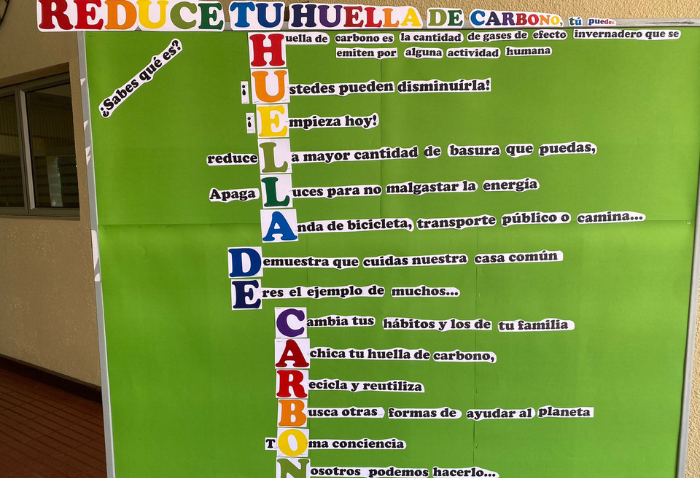 REDUCE TU HUELLA DE CARBONO, tú puedes
¿Sabes qué es?
Huella de carbono es la cantidad de gases de efecto invernadero que se
emiten por alguna actividad humana
Ustedes pueden disminuírla!
¡Empieza hoy!
reduce La mayor cantidad de basura que puedas,
Apaga Luces para no malgastar la energía
Anda de bicicleta, transporte público o camina...
Demuestra que cuidas nuestra casa común
Eres el ejemplo de muchos...
Cambia tus hábitos y los de tu familia
Achica tu huella de carbono,
Recicla y reutiliza
Busca otras formas de ayudar al planeta
TOma conciencia
Nosotros podemos hacerlo...